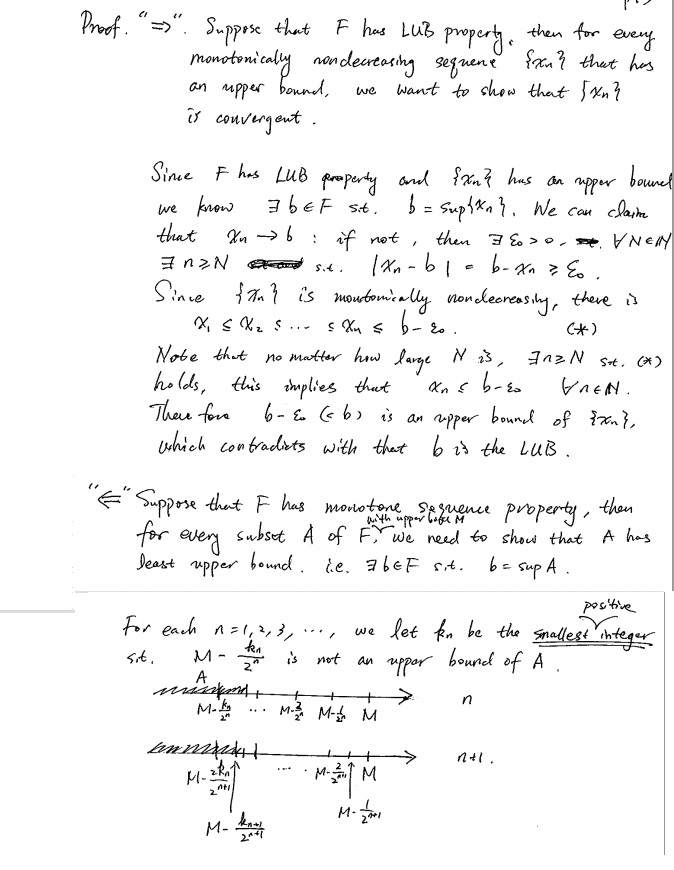 Proof. "⇒". Suppose that F has LUB property, then for every
monotonically nondecreasing sequence {xn} that has
an upper bound, we want to show that {xn}
is convergent.
Since F has LUB property and {xn} has an upper bound
we know ∃ b ∈ F s.t. b = sup{xn}. We can claim
that xn → b : if not, then ∃ ε₀ > 0, ∀ N ∈ ℕ
∃ n ≥ N s.t. |xn - b| = b - xn ≥ ε₀.
Since {xn} is montonically nondecreasily, there is
x₁ ≤ x₂ ≤ ... ≤ xn ≤ b - ε₀. (*)
Note that no matter how large N is, ∃ n ≥ N s.t. (*)
holds, this implies that xn ≤ b - ε₀ ∀ n ∈ ℕ.
There fore b - ε₀ (< b) is an upper bound of {xn},
which contradicts with that b is the LUB.
"⇐" Suppose that F has monotone sequence property, then
for every subset A of F, with upper bound M we need to show that A has
least upper bound. i.e. ∃ b ∈ F s.t. b = sup A.
For each n = 1, 2, 3, ..., we let kn be the smallest positive integer
s.t. M - kn/2ⁿ is not an upper bound of A.
A
M - kn/2ⁿ ... M - 2/2ⁿ M - 1/2ⁿ M n
M - 2kn/2ⁿ⁺¹ ... M - 2/2ⁿ⁺¹ M n+1.
M - kn+1/2ⁿ⁺¹ M - 1/2ⁿ⁺¹